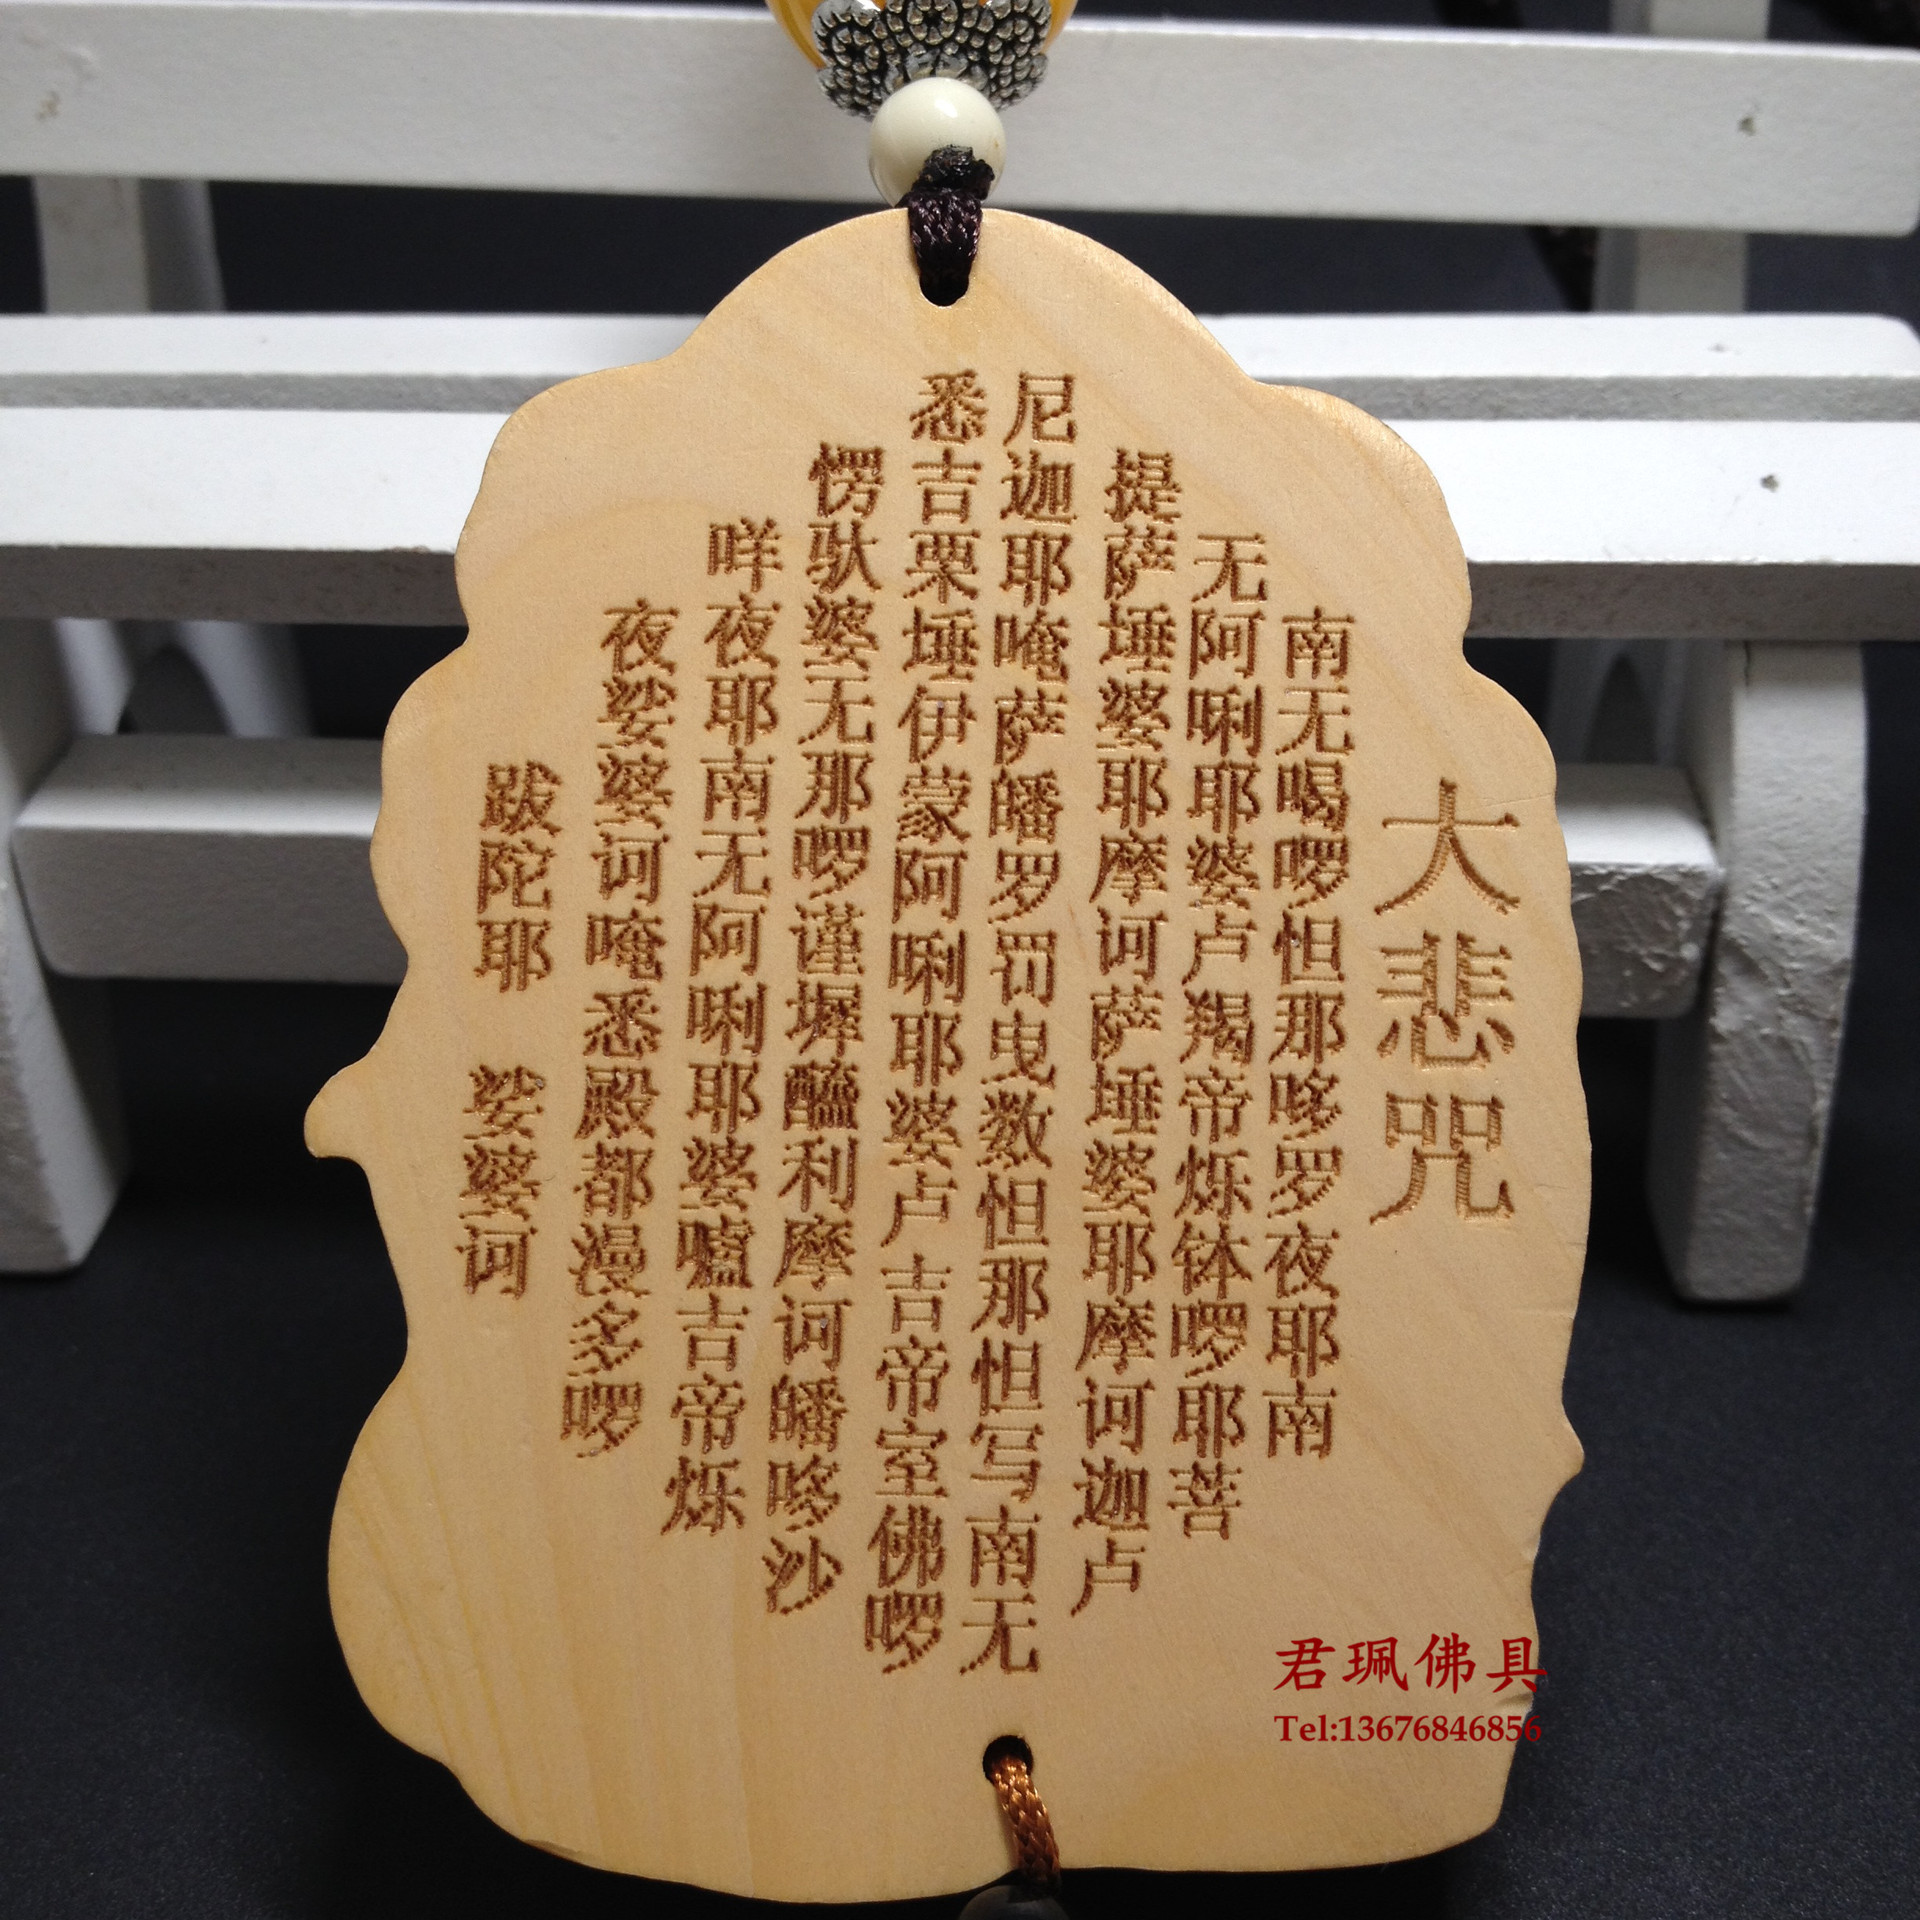 大悲咒
南无喝啰怛那哆罗夜耶南
无阿唎耶婆卢羯帝烁钵啰耶菩
提萨埵婆耶摩诃萨埵婆耶摩诃迦卢
尼迦耶唵萨皤罗罚曳数怛那怛写南无
悉吉栗埵伊蒙阿唎耶婆卢吉帝室佛啰
愕驮婆无那啰谨墀醯利摩诃皤哆沙
咩夜耶南无阿唎耶婆嚧吉帝烁
夜娑婆诃唵悉殿都漫多啰
跋陀耶 娑婆诃
君珮佛具
Tel:13676846856